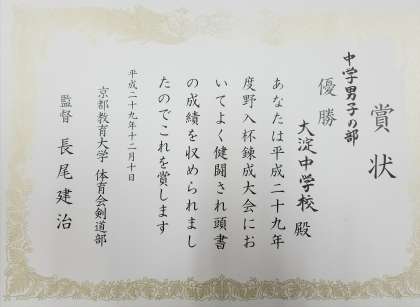 賞状
中学男子の部
優勝
大淀中学校 殿
あなたは平成二十九年
度野入杯錬成大会にお
いてよく健闘され頭書
の成績を収められまし
たのでこれを賞します
平成二十九年十二月十日
京都教育大学 体育会剣道部
監督 長尾建治